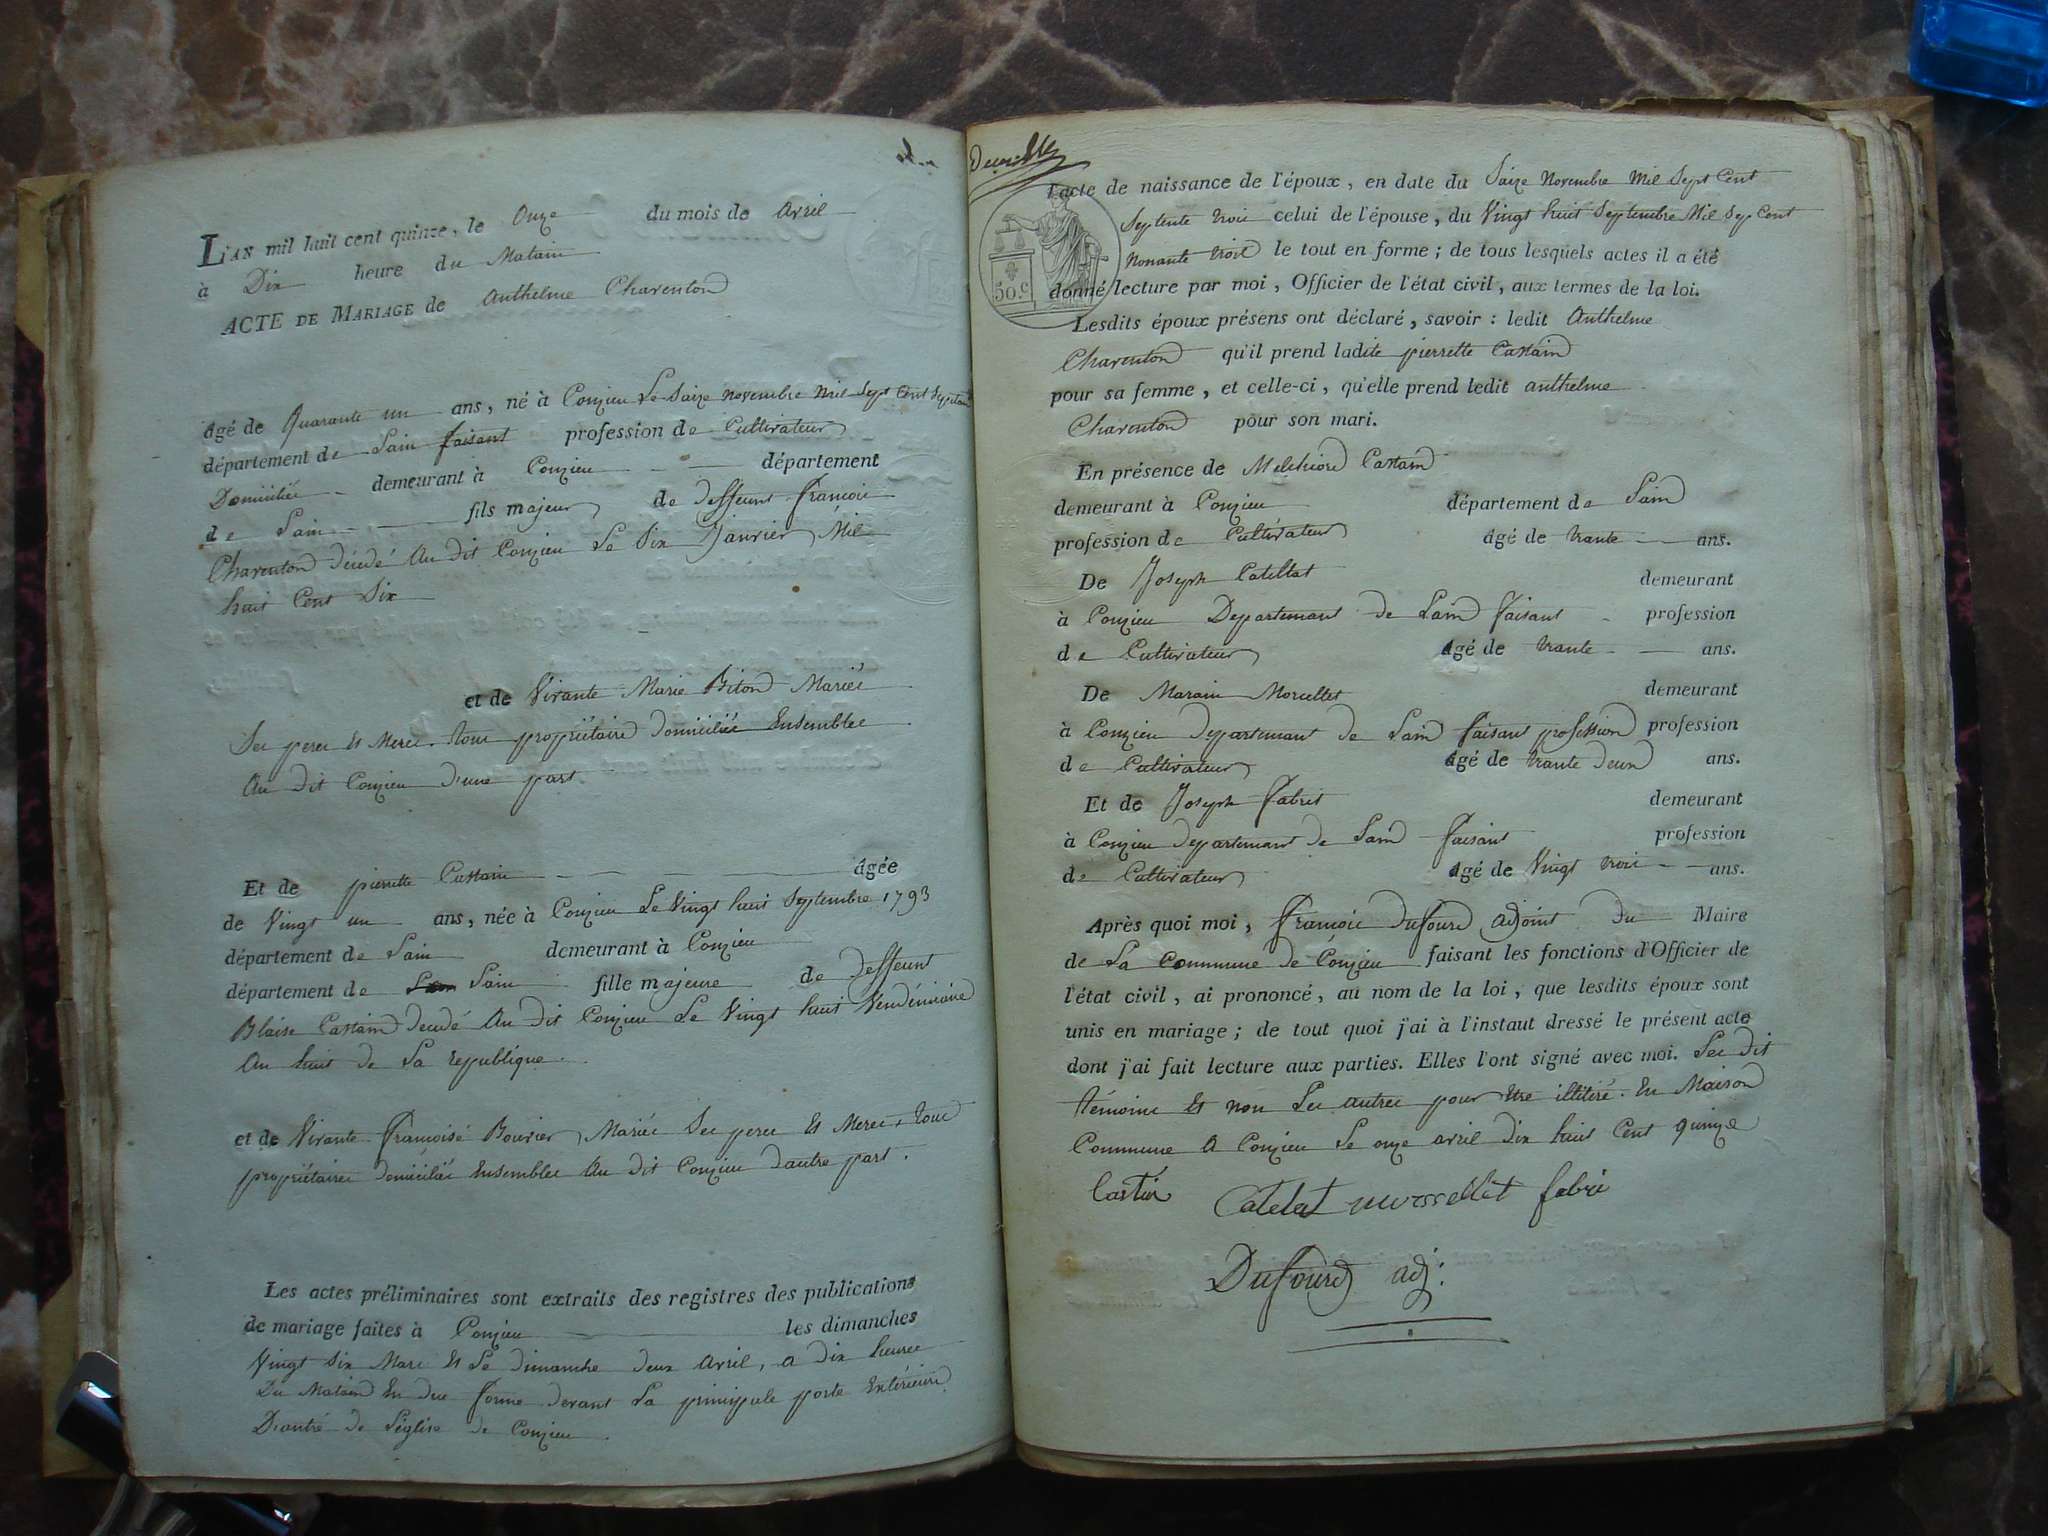 L'AN mil huit cent quinze, le Onze du mois de Avril
à Dix heure du Matain
ACTE DE MARIAGE de Anthelme Charenton
âgé de Quarante un ans, né à Conzieu Le Saize novembre mil Sept Cent Septante
département de Lain faisant profession de Cultivateur
Domiciliée demeurant à Conzieu département
de Lain fils majeur de deffeunt francoie
Charenton décédé Au dit Conzieu Le Six Janvier Mil
huit Cent Six
et de Vivante Marie Biton Mariéé
Sec perec Et Merec touc propriétaire domiciliée Ensemblee
Au dit Conzieu d'une part
Et de pierrette Castain âgée
de Vingt un ans, née à Conzieu Le Vingt huit Septembre 1793
département de Lain demeurant à Conzieu
département de Lain fille majeure de deffeunt
Blaise Castain decédé Au dit Conzieu Le Vingt huit Vendémiaire
An huit de La republique
et de Vivante françoisé Bouvier Mariéc Sec perec Et Merec, touc
propriétairec domiciliéc Ensemblec Au dit Conzieu dautre part.
Les actes préliminaires sont extraits des registres des publications
de mariage faites à Conzieu les dimanches
Vingt Six Marc Et Le dimanche deux Avril, a dix heurec
Du Matain En due forme devant La principale porte Extérieure
Dzantré de Léglise de Conzieu
l'acte de naissance de l'époux, en date du Saize Novembre Mil Sept Cent
Septente troic celui de l'épouse, du Vingt huit Septembre Mil Sep Cent
Nonante troic le tout en forme; de tous lesquels actes il a été
donné lecture par moi, Officier de l'état civil, aux termes de la loi.
50 c
Lesdits époux présens ont déclaré, savoir: ledit Anthelme
Charenton qu'il prend ladite pierrette Castain
pour sa femme, et celle-ci, qu'elle prend ledit anthelme
Charenton pour son mari.
En présence de Melchiord Castain
demeurant à Conzieu département de Lain
profession de Cultivateur âgé de trante ans.
De Joseph Catellat demeurant
à Conzieu Departemant de Lain faisant profession
de Cultivateur âgé de trante ans.
De Marain Morcellet demeurant
à Conzieu departemant de Lain faisant profession profession
de Cultivateur âgé de trante deux ans.
Et de Joseph fabrit demeurant
à Conzieu departemant de Lain faisant profession
de Cultivateur âgé de Vingt troic ans.
Après quoi moi, francoic dufourd adjoint du Maire
de La Commune de Conzieu faisant les fonctions d'Officier de
l'état civil, ai prononcé, au nom de la loi, que lesdits époux sont
unis en mariage; de tout quoi j'ai à l'instant dressé le présent acte
dont j'ai fait lecture aux parties. Elles l'ont signé avec moi. Lec dit
témoinc Et non Lec autrec pour Etre illitiré. En Maison
Commune A Conzieu Le onze avril dix huit Cent quinze
Castin Catelat morsellet fabri
Dufourd adj: